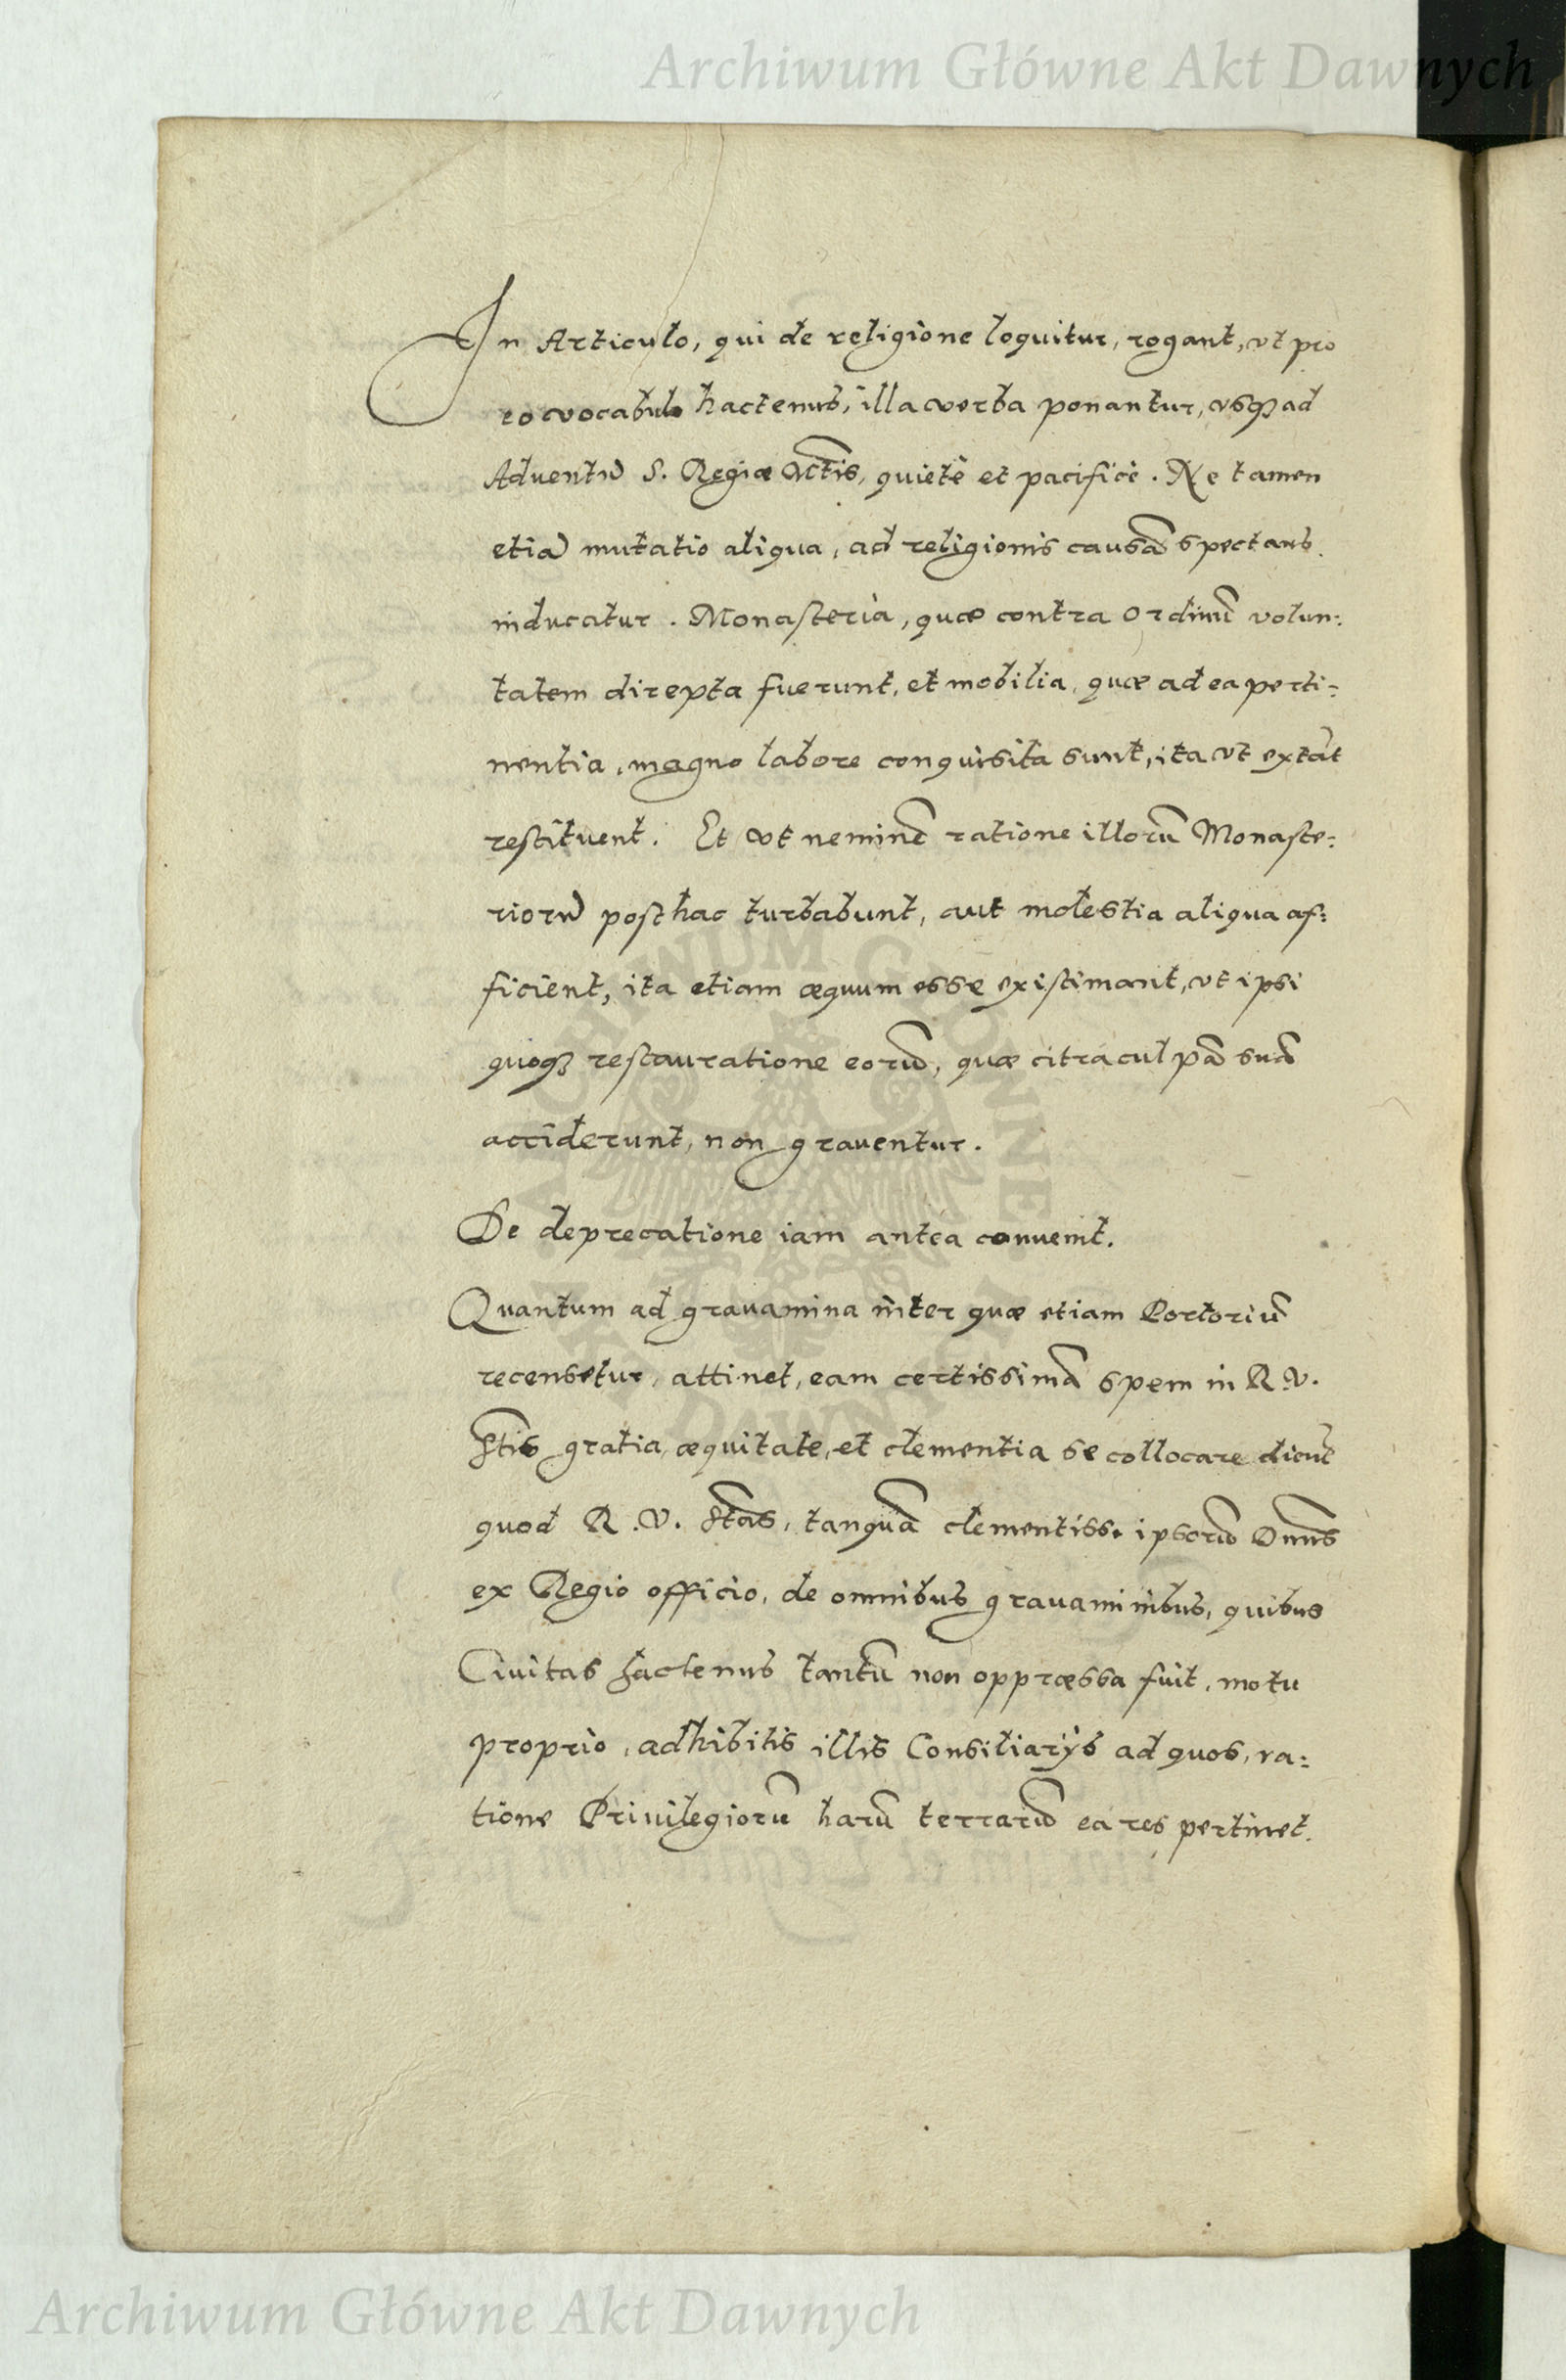 Archiwum Główne Akt Dawnych
In Articulo, qui de religione loquitur, rogant, vt pro
eo vocabulo hactenus, illa verba ponantur, vsq3 ad
Aduentũ S. Regiæ Mtis, quietè et pacificè. Ne tamen
etiã mutatio aliqua, ad religionis causã spectans
inducatur. Monasteria, quæ contra Ordinũ volun:
tatem direpta fuerunt, et mobilia, quæ ad ea perti:
nentia, magno labore conquisita sunt, ita vt extãt
restituent. Et vt neminẽ ratione illorũ Monaste:
riorũ posthac turbabunt, aut molestia aliqua af:
ficient, ita etiam æquum esse existimant, vt ipsi
quoq3 restauratione eorũ, quæ citra culpã suã
acciderunt, non grauentur.
De deprecatione iam antea conuenit.
Quantum ad grauamina inter quæ etiam Portoriũ
recensetur, attinet, eam certissimã spem in R. V.
Stis gratia, æquitate, et clementia se collocare dicũt
quod R. V. Stas, tanquã clementiss. ipsorũ Dnus
ex Regio officio, de omnibus grauaminibus, quibus
Ciuitas hactenus tantũ non oppræssa fuit, motu
proprio, adhibitis illis Consiliarijs ad quos, ra:
tione Priuilegiorũ harũ terrarũ ea res pertinet.
ARCHIWUM GŁÓWNE AKT DAWNYCH
Archiwum Główne Akt Dawnych